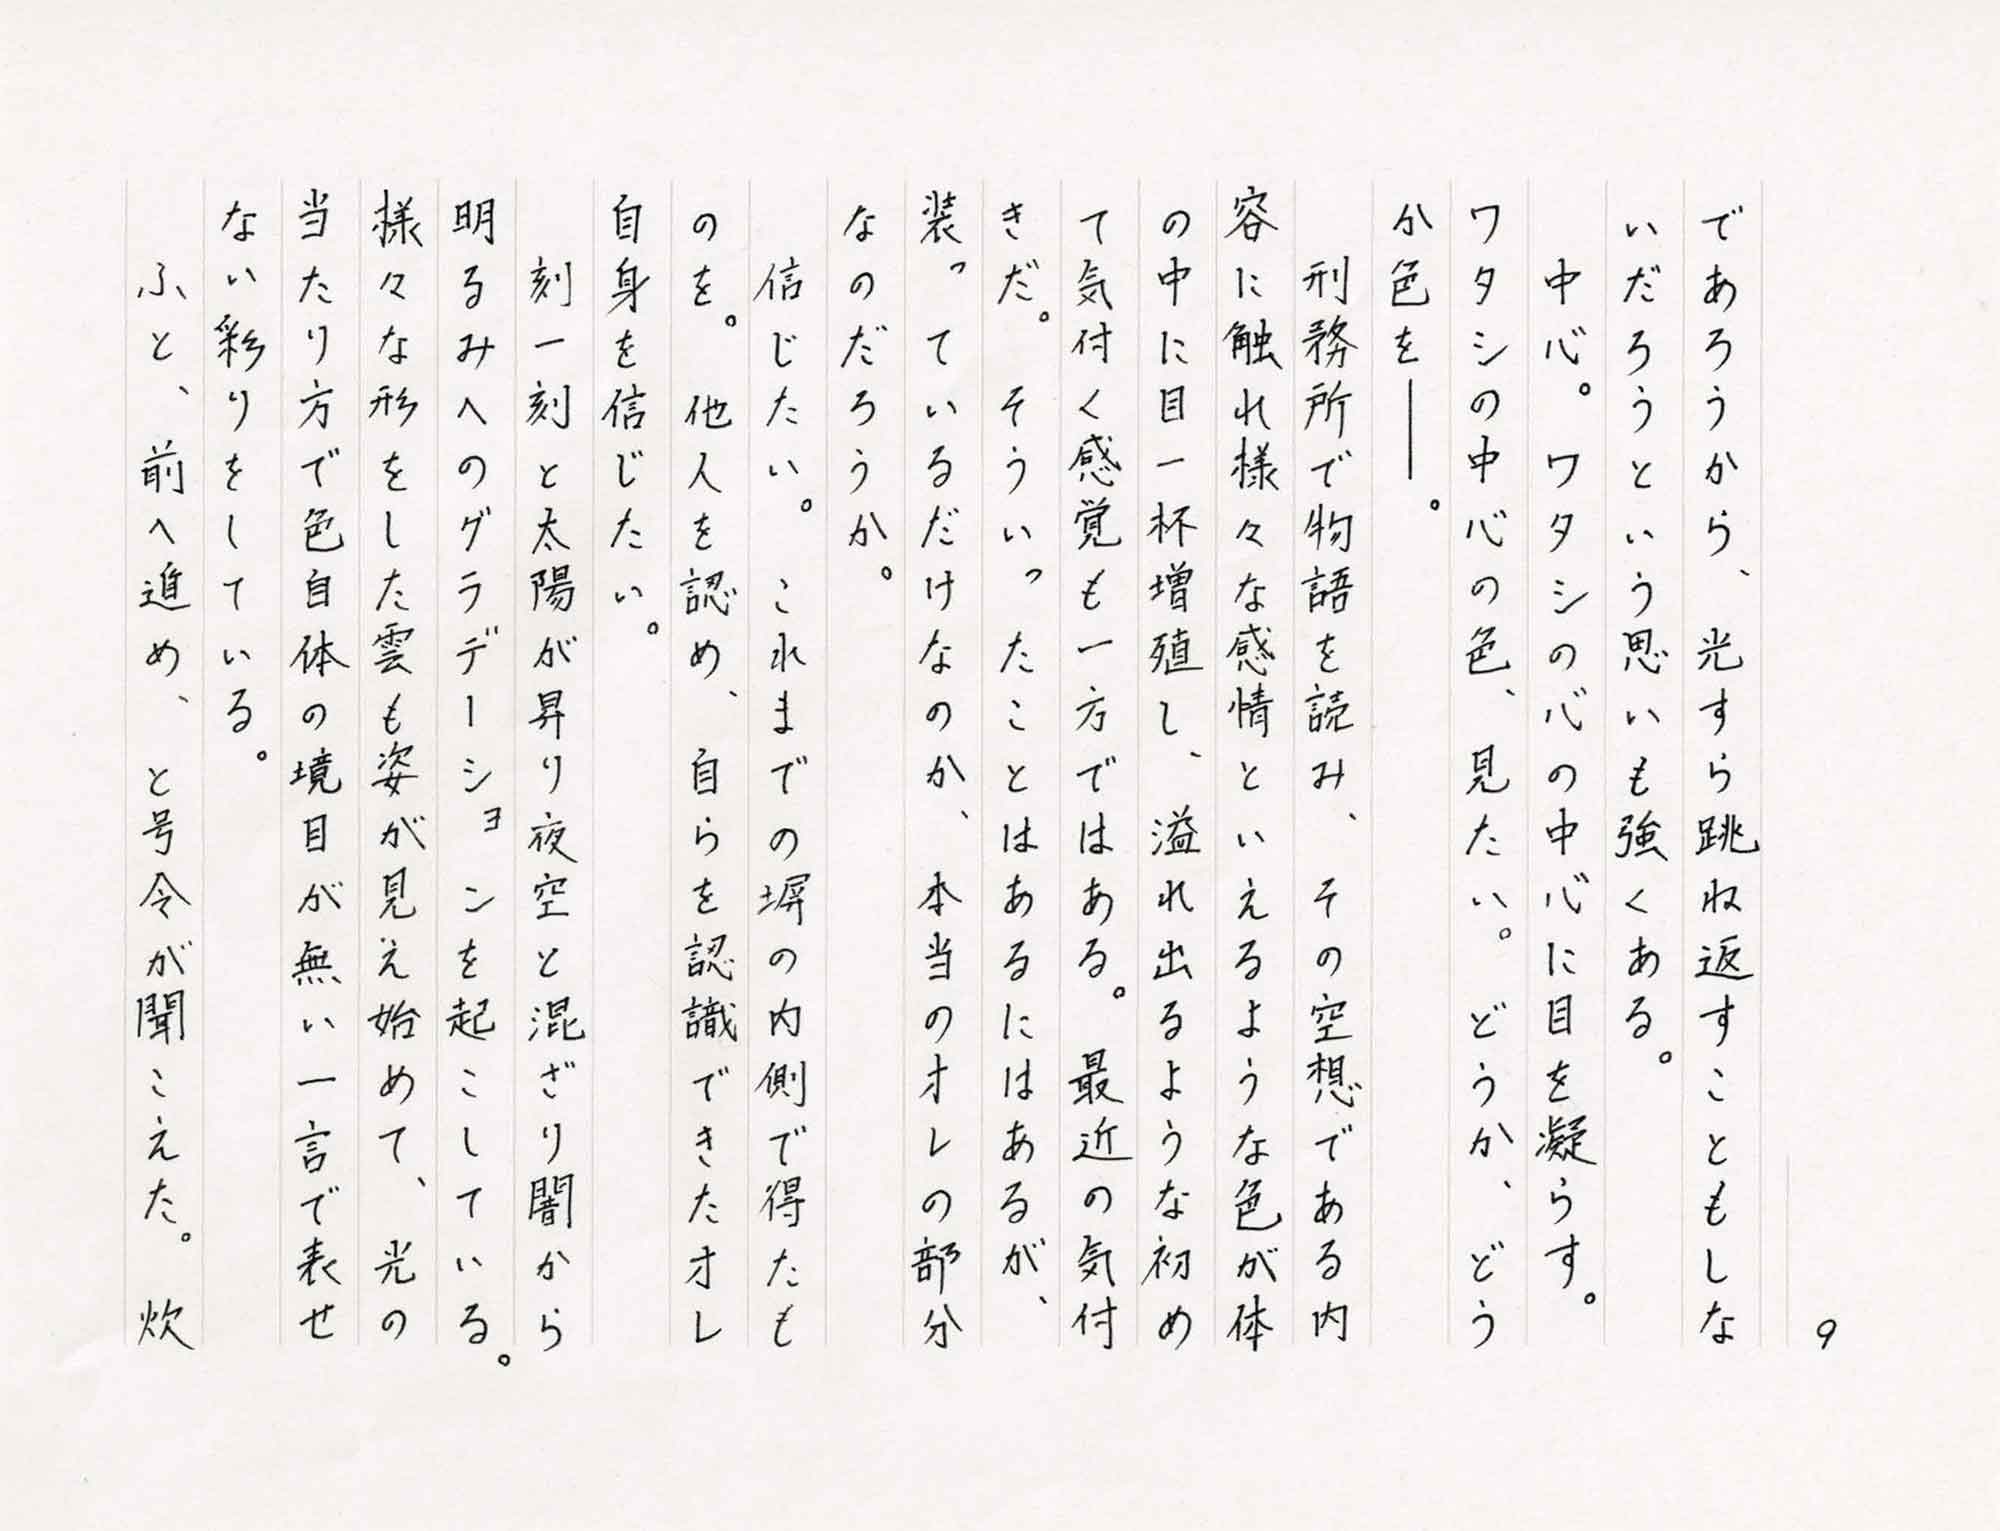 9
であろうから、光すら跳ね返すこともしな
いだろうという思いも強くある。
中心。ワタシの心の中心に目を凝らす。
ワタシの中心の色、見たい。どうか、どう
か色を――。
刑務所で物語を読み、その空想である内
容に触れ様々な感情といえるような色が体
の中に目一杯増殖し、溢れ出るような初め
て気付く感覚も一方ではある。最近の気付
きだ。そういったことはあるにはあるが、
装っているだけなのか、本当のオレの部分
なのだろうか。
信じたい。これまでの塀の内側で得たも
のを。他人を認め、自らを認識できたオレ
自身を信じたい。
刻一刻と太陽が昇り夜空と混ざり闇から
明るみへのグラデーションを起こしている。
様々な形をした雲も姿が見え始めて、光の
当たり方で色自体の境目が無い一言で表せ
ない彩りをしている。
ふと、前へ進め、と号令が聞こえた。炊